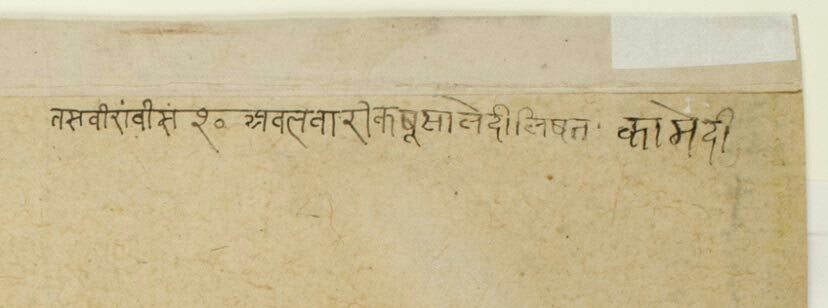 तसवीरां वीस २० अवल वारीक षूसालेदी लिषत कामेदी